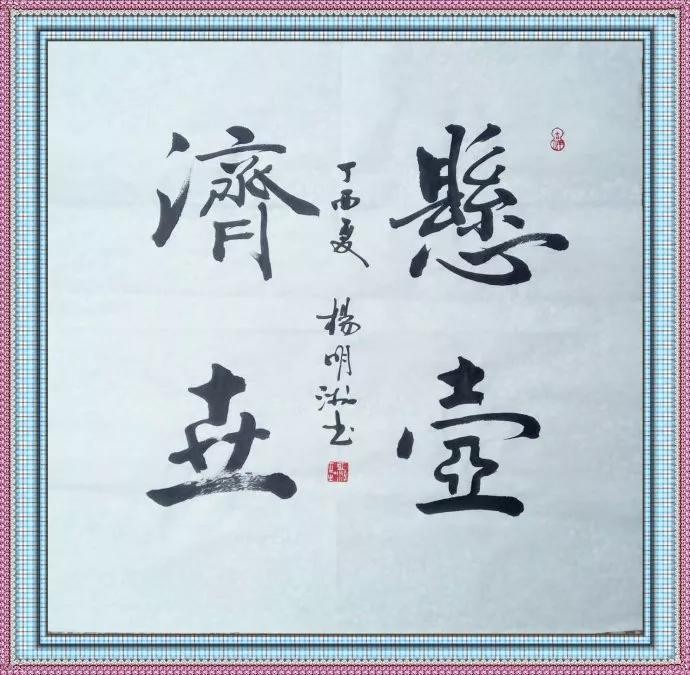 懸壺
濟世
丁酉夏
楊明书